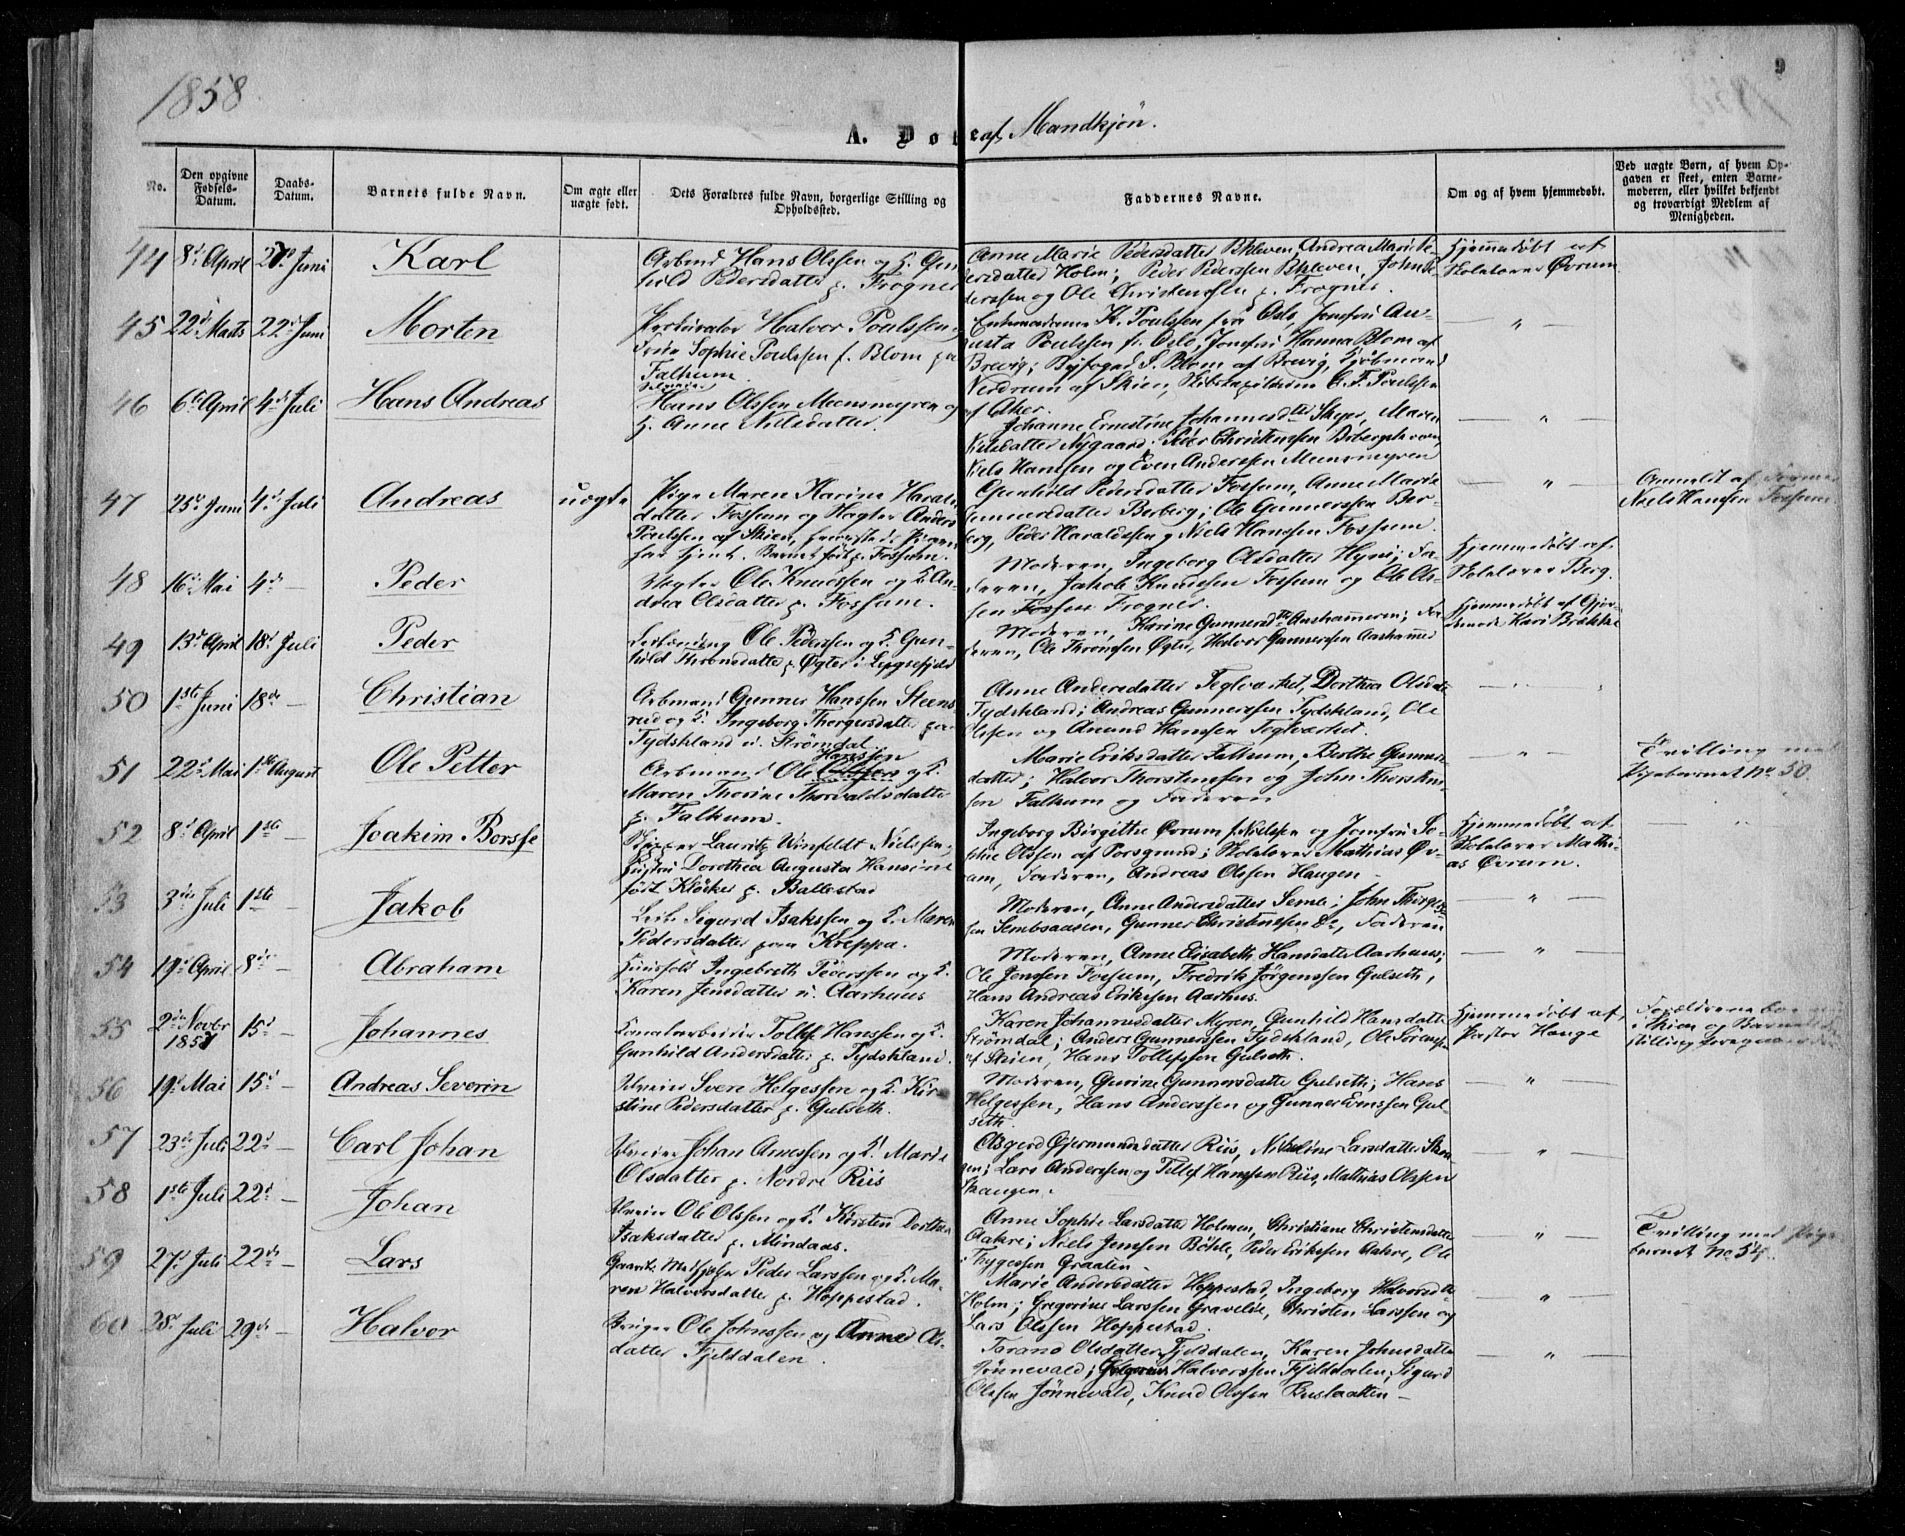 1858
9
A. Døbte af Mandkjøn.
No. | Den opgivne Fødsels-Datum. | Daabs-Datum. | Barnets fulde Navn. | Om ægte eller uægte født. | Dets Forældres fulde Navn, borgerlige Stilling og Opholdssted. | Faddernes Navne. | Om og af hvem hjemmedøbt. | Ved uægte Børn, af hvem Opgaven er skeet, enten Barnemoderen, eller hvilket bekjendt og troværdigt Medlem af Menigheden.
44 8d April Juni Karl
Arbmd Hans Olssen og H. Gun-
hild Pedersdatter p. Frogner
Anne Marie Pedersdatter Andrea Marie Pe-
dersdatter Holm; Peder Pederssen John Pe-
derssen og Ole Christenssen p. Frogner.
Hjemmedøbt af
Skolelærer Øvrum
45 22d Marts 22d Juni Morten
Prokurator Halvor Poulssen,
Frue Sophie Poulssen f. Blom paa
Falkum
Enkemadame K. Poulssen fra Oslo, Jomfru Au-
gusta Poulssen fr. Oslo; Jomfru Hanna Blom af
Brevig; Byfoged S. Blom af Brevig, Kjøbmand
Nerdrum af Skien, C. F. Poulssen
af Aker.
46 6te April 4de Juli Hans Andreas
Hans Olssen Meensmyren og
H. Anne Nilsdatter.
Johanne Ernestine Johannesdtr Maren
Nilsdatter Nygaard. Peder Christenssen
Niels Hanssen og Even Anderssen Meensmyren
47 25d Juni 4de Juli Andreas uægte
Pige Maren Karine Haralds-
datter Fossum og Anders
Poulssen af Skien,
har tjent. Barnet født p. Fossum.
Gunhild Pedersdatter Fossum, Anne Marie
Gunnersdatter Borberg; Ole Gunnerssen Bor-
berg, Peder Haraldssen og Niels Hanssen Fossum.
Anmeldt af
Niels Hanssen Fossum
48 16d Mai 4de — Peder
Ole Knudssen og H. An-
drea Olsdatter p. Fossum.
Moderen, Ingeborg Olsdatter Fa-
deren, Jakob Knudssen Fossum og Ole Ols-
sen Frogner.
Hjemmedøbt af
Skolelærer Berg.
49 13d April 18d Juli Peder
Ole Pederssen og H. Gun-
hild Thronsdatter p. Øgter i
Moderen, Karine Gunnersdtr Aashammeren; Fa-
deren, Ole Thronssen Øgter, Halvor Gunnerssen Aashammer
Hjemmedøbt af Gjor-
demode Kari Brekke
50 1ste Juni 18de — Christian
Arbmand Gunner Hanssen Steens-
rud og H. Ingeborg Thorgersdatter paa
Tydskland u. Strømdal
Anne Andersdatter Teglværket, Dorthea Olsdatter
Tydskland; Andreas Gunnerssen Tydskland, Ole
Olssen og Amund Hanssen Teglværket.
51 22d Mai 1ste August Ole Petter
Hanssen
Arbmand Ole og H.
Maren Thorine Thorvaldsdatter
p. Falkum.
Marie Eriksdatter Falkum, Berthe Gunners-
datter; Halvor Thorstenssen og John Thorstens-
sen Falkum og Faderen
Tvilling med
Pigebarnet No 50.
52 8d April 1ste — Joakim Borsse
Skipper Lauritz Winfeldt Nielssen,
Hustru Dorothea Augusta Hansine
født Kløcker p. Ballestad
Ingeborg Birgitthe Øvrum f. Nielssen og Jomfru So-
phie Olssen af Porsgrund; Skolelærer Mathias Øv-
rum, Faderen, Andreas Olssen Haugen —
Hjemmedøbt af
Skolelærer Mathi-
as Øvrum.
53 3die Juli 1ste — Jakob
Sigurd Isakssen og H. Maren
Pedersdatter paa Kreppa.
Moderen, Anne Andersdatter Semb; John
Sembsaasen, Gunner Christenssen do, Faderen
54 19d April 8de — Abraham
Husfolk Ingebreth Pederssen og H.
Karen Jensdatter u. Aarhuus
Moderen, Anne Elisabeth Hansdatter Aarhuus;
Ole Jenssen Fossum, Fredrik Jørgenssen Gulseth,
Hans Andreas Erikssen Aarhus.
55 2den Novbr 1857 15d — Johannes
Kanalarbeider Tollef Hanssen og H.
Gunhild Andersdatter p. Tydskland.
Karen Johannesdatter Myren, Gunhild Hansdatter
Strømdal; Anders Gunnerssen Tydskland, Ole Sørenssen
af Skien, Hans Tollefssen Gulseth.
Hjemmedøbt af
Pastor Hauge
Forældrene bor
i Skien og Barnets
56 19d Mai 15d — Andreas Severin
Sven Helgessen og H. Kir-
stine Pedersdatter p. Gulseth.
Moderen, Gurine Gunnersdatter Gulseth; Hans
Helgessen, Hans Anderssen og Gunner Gul-
seth.
57 23de Juli 22d — Carl Johan
Johan Arnessen og H. Marie
Olsdatter p. Nordre Riis
Gjermundsdatter Riis, Nikoline Larsdatter
Lars Anderssen og Tollef Hanssen Riis, Mathias Olssen
58 1ste Juli 22d — Johan
Ole Olssen og H. Kirsten Dorthea
Isaksdatter p. Mindaas.
Anne Sophie Larsdatter Holmen, Christiane Christensdatter
Aakre; Niels Jenssen Bøhle, Peder Erikssen Aakre, Ole
Thygessen Graaten —
Tvilling med Pige-
barnet No 54.
59 27d Juli 22de — Lars
Peder Larssen og H. Ma-
ren Halvorsdatter p. Hoppestad.
Marie Andersdatter Hoppestad, Ingeborg Halvorsdtr
Holm; Gregorius Larssen Gravelie, Christen Larssen og
Lars Olssen Hoppestad.
60 28d Juli 29de — Halvor
Bruger Ole Johnssen og Anne Ols-
datter Fjelddalen.
Tarand Olsdatter Fjelddalen, Karen Johnsdatter
Jønnevald; Halvorssen Fjelddalen, Sigurd
Olssen Jønnevald, Knud Olssen —